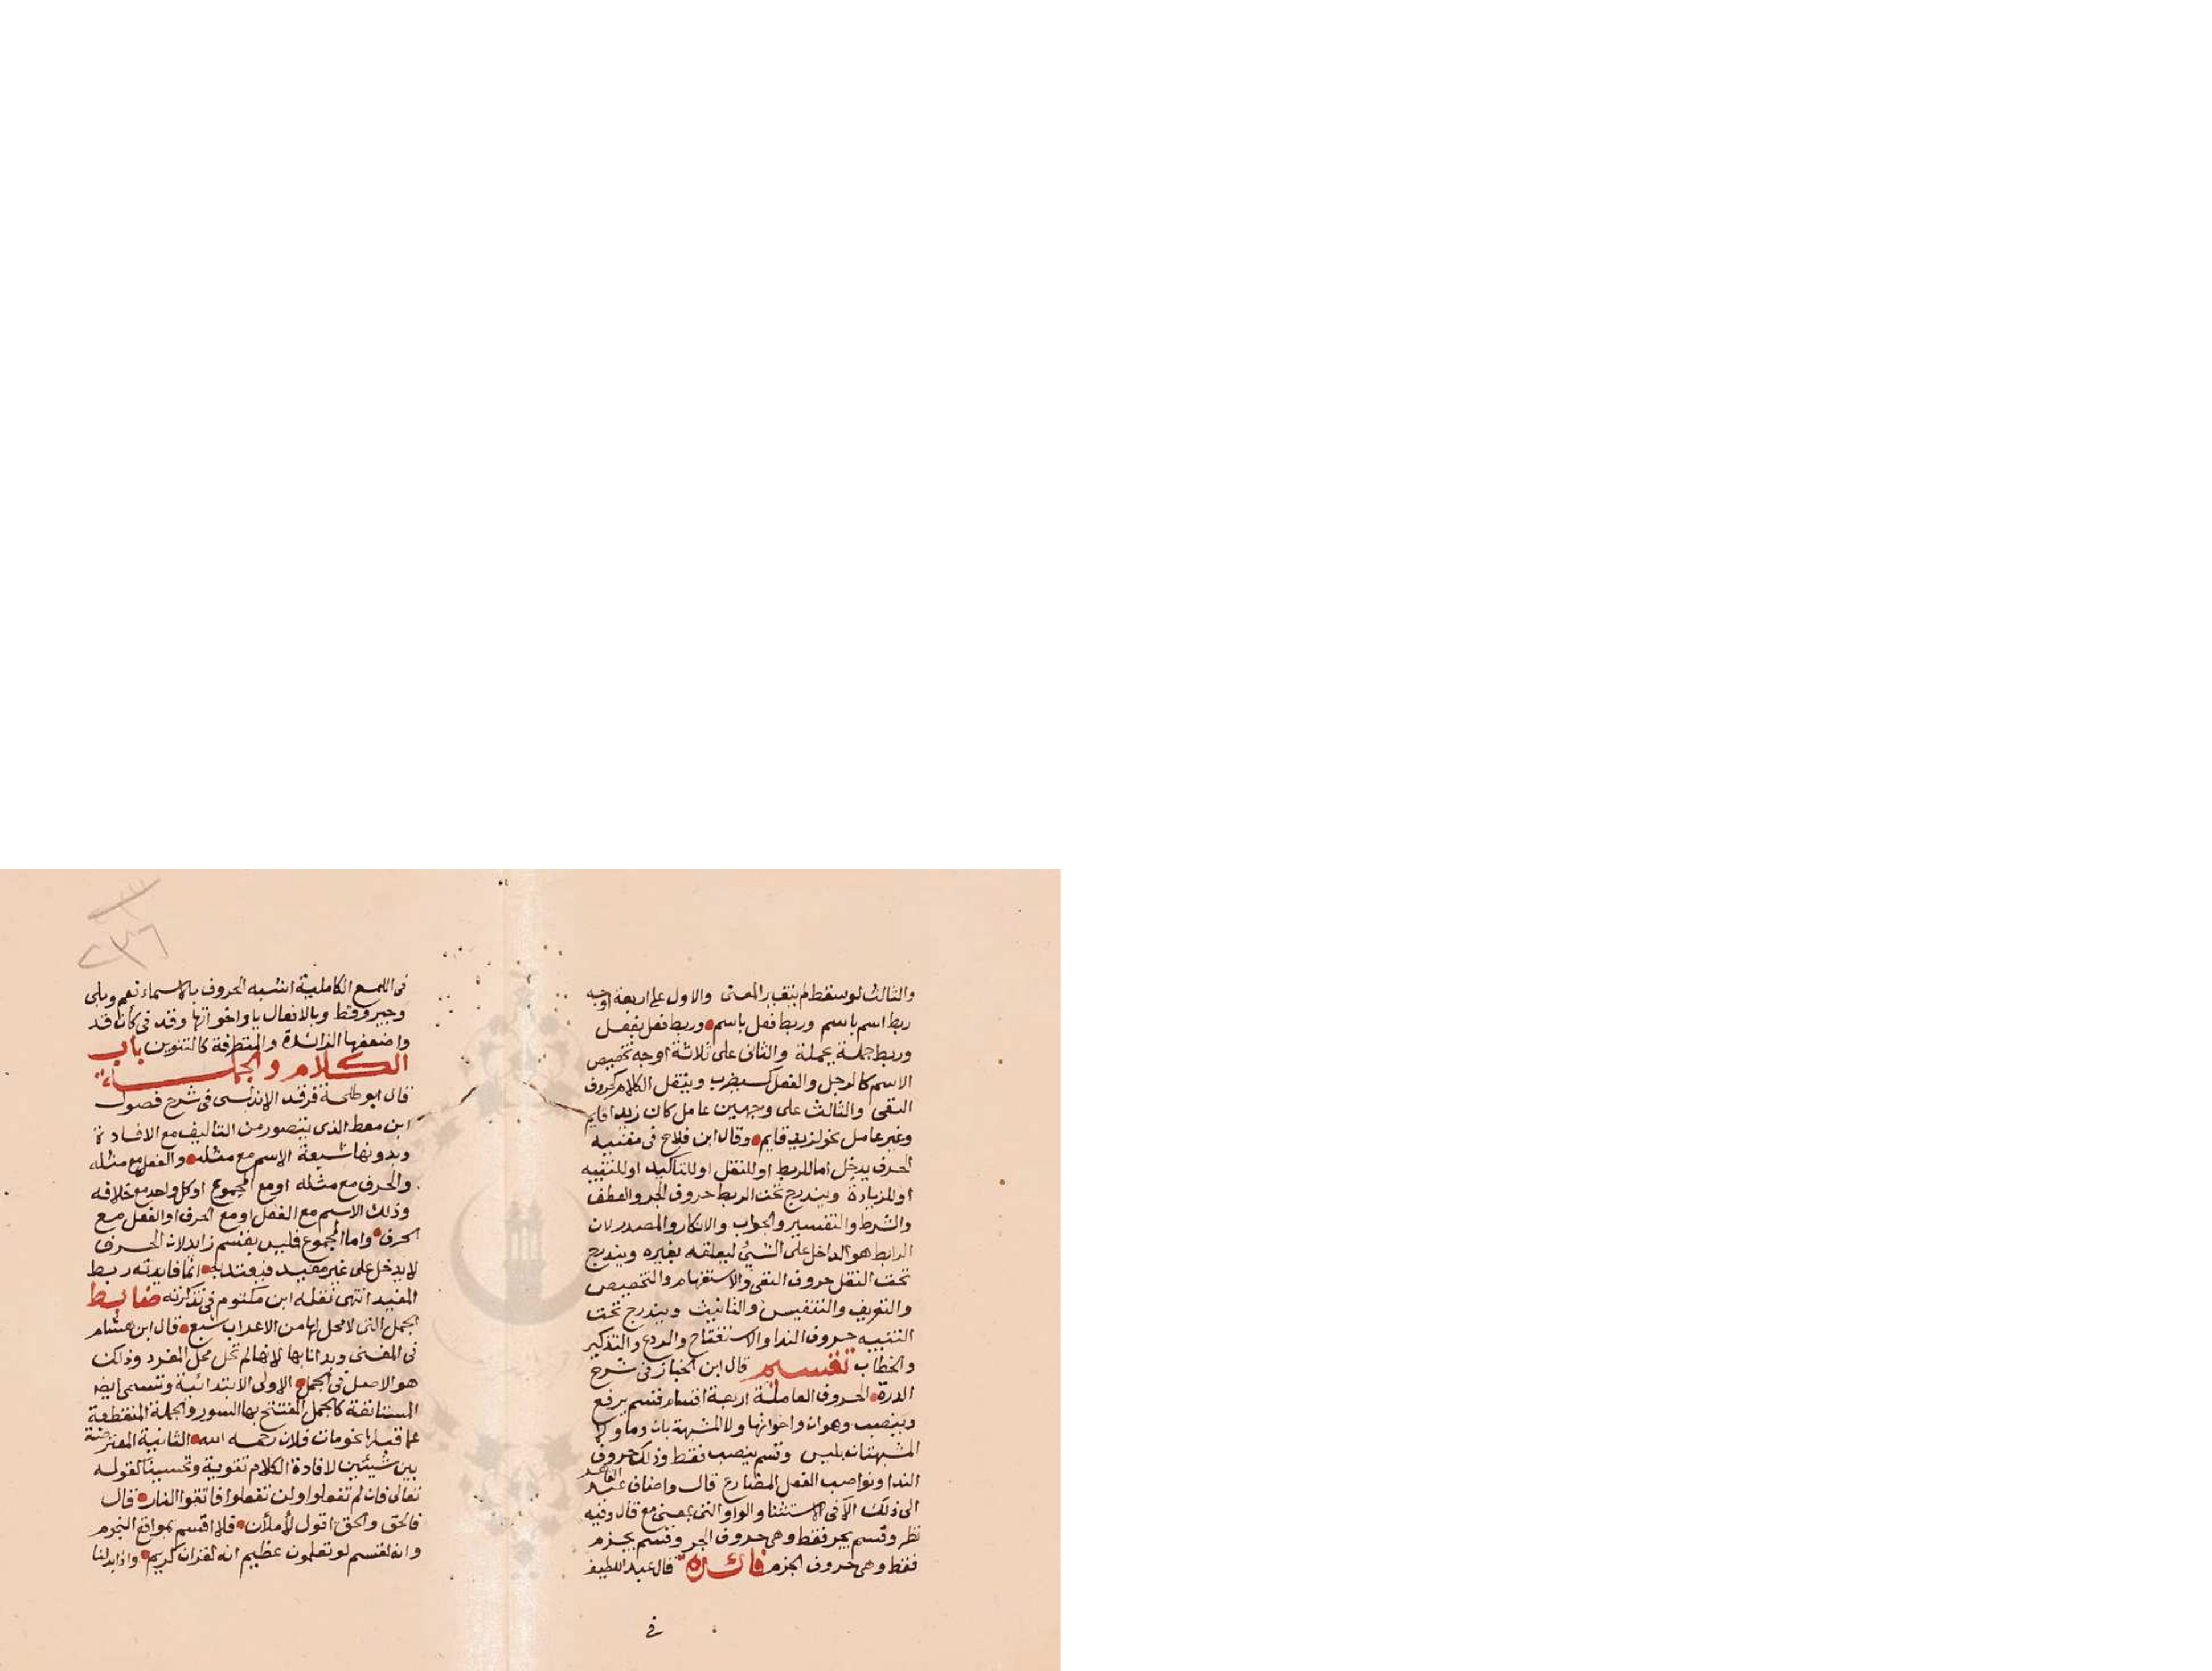 والثالث لو سقط لم يتغير المعنى والاول على اربعة اوجه
ربط اسم باسم وربط فعل باسم وربط فعل بفعل
وربط جملة بجملة والثانى على ثلاثة اوجه تخصيص
الاسم كالرجل والفعل كسيضرب وينقل الكلام كحروف
النفى والثالث على وجهين عامل كان زيدا قايم
وغير عامل نحو لزيد قايم وقال ابن فلاح فى مغنيه
الحرف يدخل اما للربط او للنقل او للتاكيد او للتنبيه
او للزيادة ويندرج تحت الربط حروف الجر والعطف
والشرط والتفسير والجواب والانكار والمصدر لان
الرابط هو الداخل على الشئ ليعلقه بغيره ويندرج
تحت النقل حروف النفى والاستفهام والتخصيص
والتعريف والتنفيس والتانيث ويندرج تحت
التنبيه حروف الندا والاستفتاح والردع والتذكير
والخطاب تقسيم قال ابن الخباز فى شرح
الدرة الحروف العاملة اربعة اقسام قسم يرفع
وينصب وهو ان واخواتها ولا المشبهة بان وما ولا
المشبهتان بليس وقسم ينصب فقط وذلك حروف
الندا ونواصب الفعل المضارع قال واضاف عبد القاهر
الى ذلك الا فى الاستثنا والواو التى بمعنى مع قال وفيه
نظر وقسم يجر فقط وهى حروف الجر وقسم يجزم
فقط وهى حروف الجزم فائدة قال عبد اللطيف
فى
٢٣٦
فى اللمع الكاملية اشبه الحروف بالاسماء نعم وبلى
وجير وقط وبالافعال يا واخواتها وقد فى كأن قد
واضعفها الزائدة والمتطرفة كالتنوين باب
الكلام والجملة
قال ابو طلحة فرقد الاندلسى فى شرح فصول
ابن معط الذى يتصور من التاليف مع الافادة
وبدونها سبعة الاسم مع مثله والفعل مع مثله
والحرف مع مثله او مع المجموع او كل واحد مع خلافه
وذلك الاسم مع الفعل او مع الحرف او الفعل مع
الحرف واما المجموع فليس بقسم زايد لان الحرف
لا يدخل على غير مفيد فيعتد به انما فايدته ربط
المفيد انتهى نقله ابن مكتوم فى تذكرته ضابط
الجمل التى لا محل لها من الاعراب سبع قال ابن هشام
فى المغنى وبدانا بها لانها لم تحل محل المفرد وذلك
هو الاصل فى الجمل الاولى الابتدائية وتسمى ايضا
المستانفة كالجمل المفتتح بها السور والجملة المنقطعة
عما قبلها نحو مات فلان رحمه الله الثانية المعترضة
بين شيئين لافادة الكلام تقوية وتحسينا كقوله
تعالى فان لم تفعلوا ولن تفعلوا فاتقوا النار قال
فالحق والحق اقول لأملأن فلا اقسم بمواقع النجوم
وانه لقسم لو تعلمون عظيم انه لقران كريم واذا بدلنا